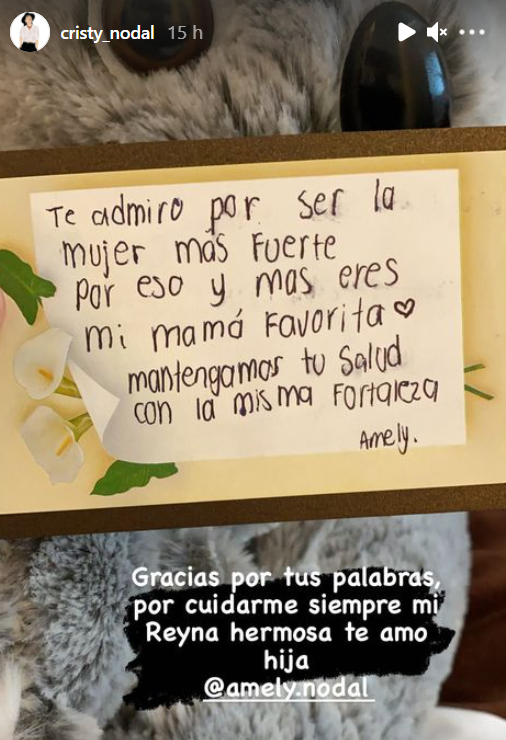 cristy_nodal 15 h
Te admiro por ser la
mujer más Fuerte
por eso y mas eres
mi mamá Favorita ♥
mantengamos tu Salud
con la misma Fortaleza
Amely.
Gracias por tus palabras,
por cuidarme siempre mi
Reyna hermosa te amo
hija
@amely.nodal